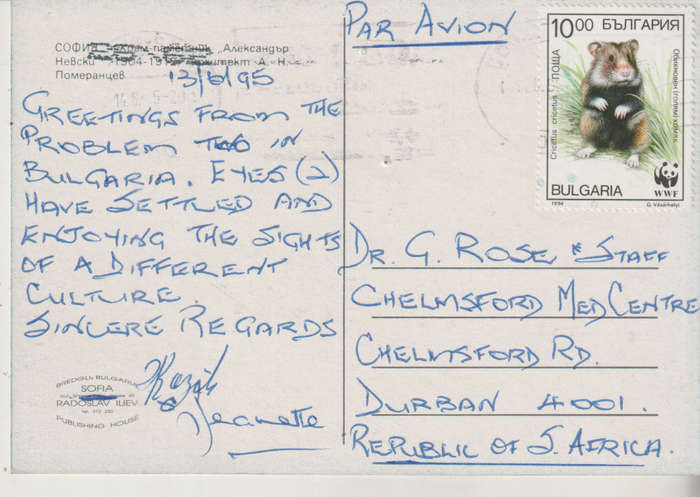 СОФИЯ Храм-паметник „Александър
Невски" 1904-1912 Архитект А. Н.
Померанцев
13/6/95
GREETINGS FROM THE
PROBLEM TWO IN
BULGARIA. EYES (2)
HAVE SETTLED AND
ENJOYING THE SIGHTS
OF A DIFFERENT
CULTURE.
SINCERE REGARDS
Jeanette
BREDGU, BULGARIA
SOFIA
RADOSLAV ILIEV
PUBLISHING HOUSE
PAR AVION
10.00 БЪЛГАРИЯ
ПОЩА
Cricetus cricetus
Обикновен (голям) хомяк
BULGARIA
WWF
1994
D. Vásárhelyi
DR. G. ROSE & STAFF
CHELMSFORD MED CENTRE
CHELMSFORD RD.
DURBAN 4001.
REPUBLIC OF S. AFRICA.